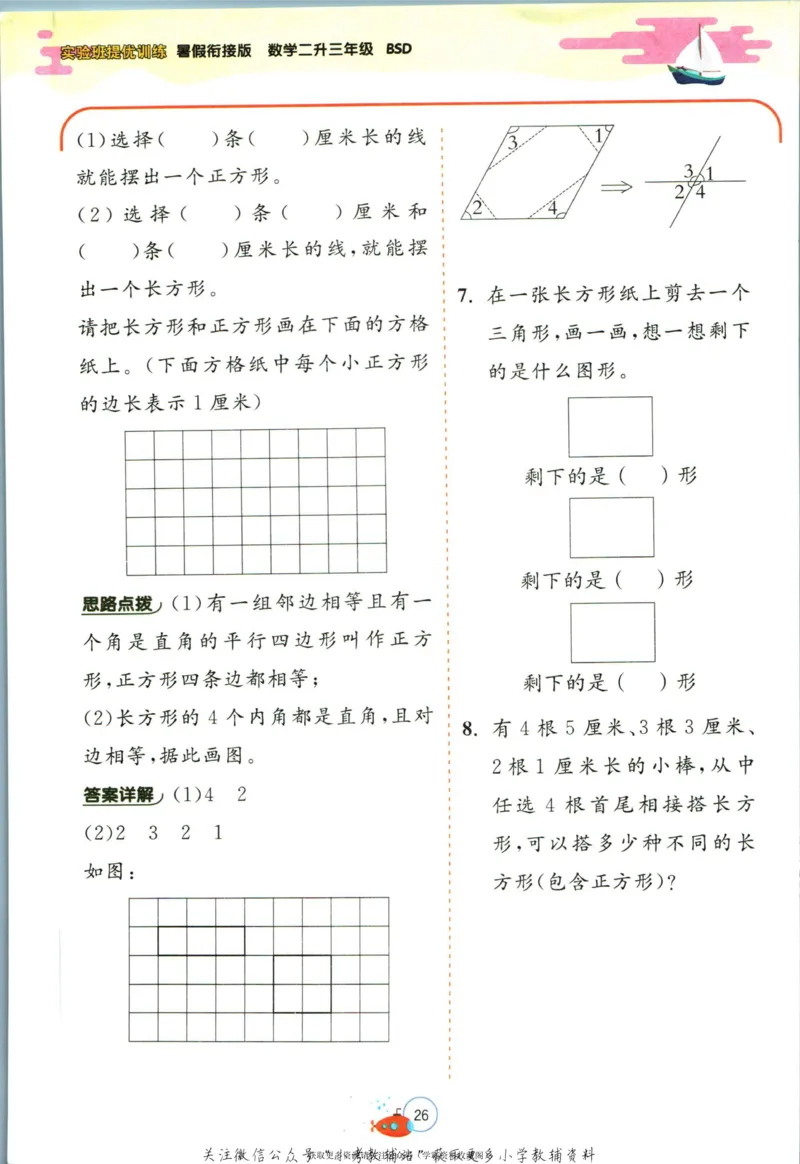 实验班提优训练 暑假衔接版 数学二升三年级 BSD
(1)选择( )条( )厘米长的线
就能摆出一个正方形。
(2)选择( )条( )厘米和
( )条( )厘米长的线,就能摆
出一个长方形。
请把长方形和正方形画在下面的方格
纸上。(下面方格纸中每个小正方形
的边长表示1厘米)
思路点拨 (1)有一组邻边相等且有一
个角是直角的平行四边形叫作正方
形,正方形四条边都相等;
(2)长方形的4个内角都是直角,且对
边相等,据此画图。
答案详解 (1)4 2
(2)2 3 2 1
如图:
3 1
2 4
3 1
2 4
7. 在一张长方形纸上剪去一个
三角形,画一画,想一想剩下
的是什么图形。
剩下的是( )形
剩下的是( )形
剩下的是( )形
8. 有4根5厘米、3根3厘米、
2根1厘米长的小棒,从中
任选4根首尾相接搭长方
形,可以搭多少种不同的长
方形(包含正方形)?
26
关注微信公众号
小学教辅资料